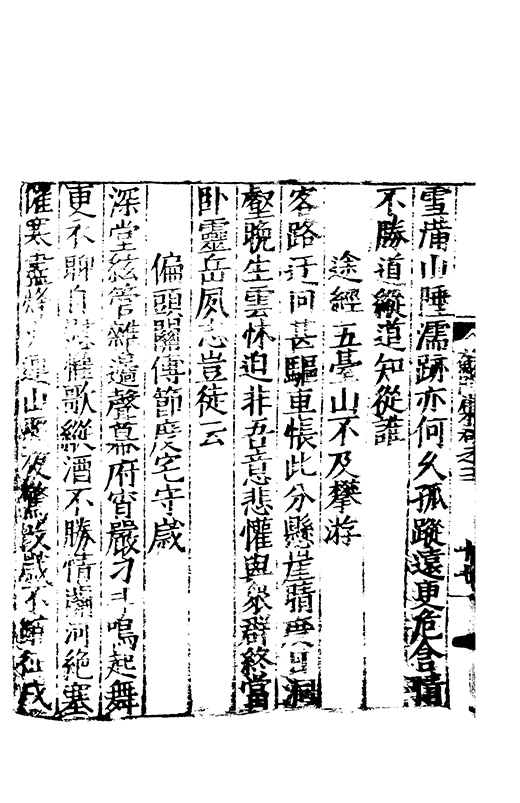 雪滿山陲濡跡亦何久孤蹤遠更危含情
不勝道縱道知從誰
途經五臺山不及攀游
客路迂回甚驅車悵此分懸崖晴洞
壑晚生雲怵迫非吾意悲懽與眾群終當
卧靈岳夙志豈徒云
偏頭關傅節度宅守歲
深堂絃管雜邊聲幕府宵嚴刁斗鳴起舞
更不聊自歌縱酒不勝情河絕塞
寒盡烽連山後驚歲不戍